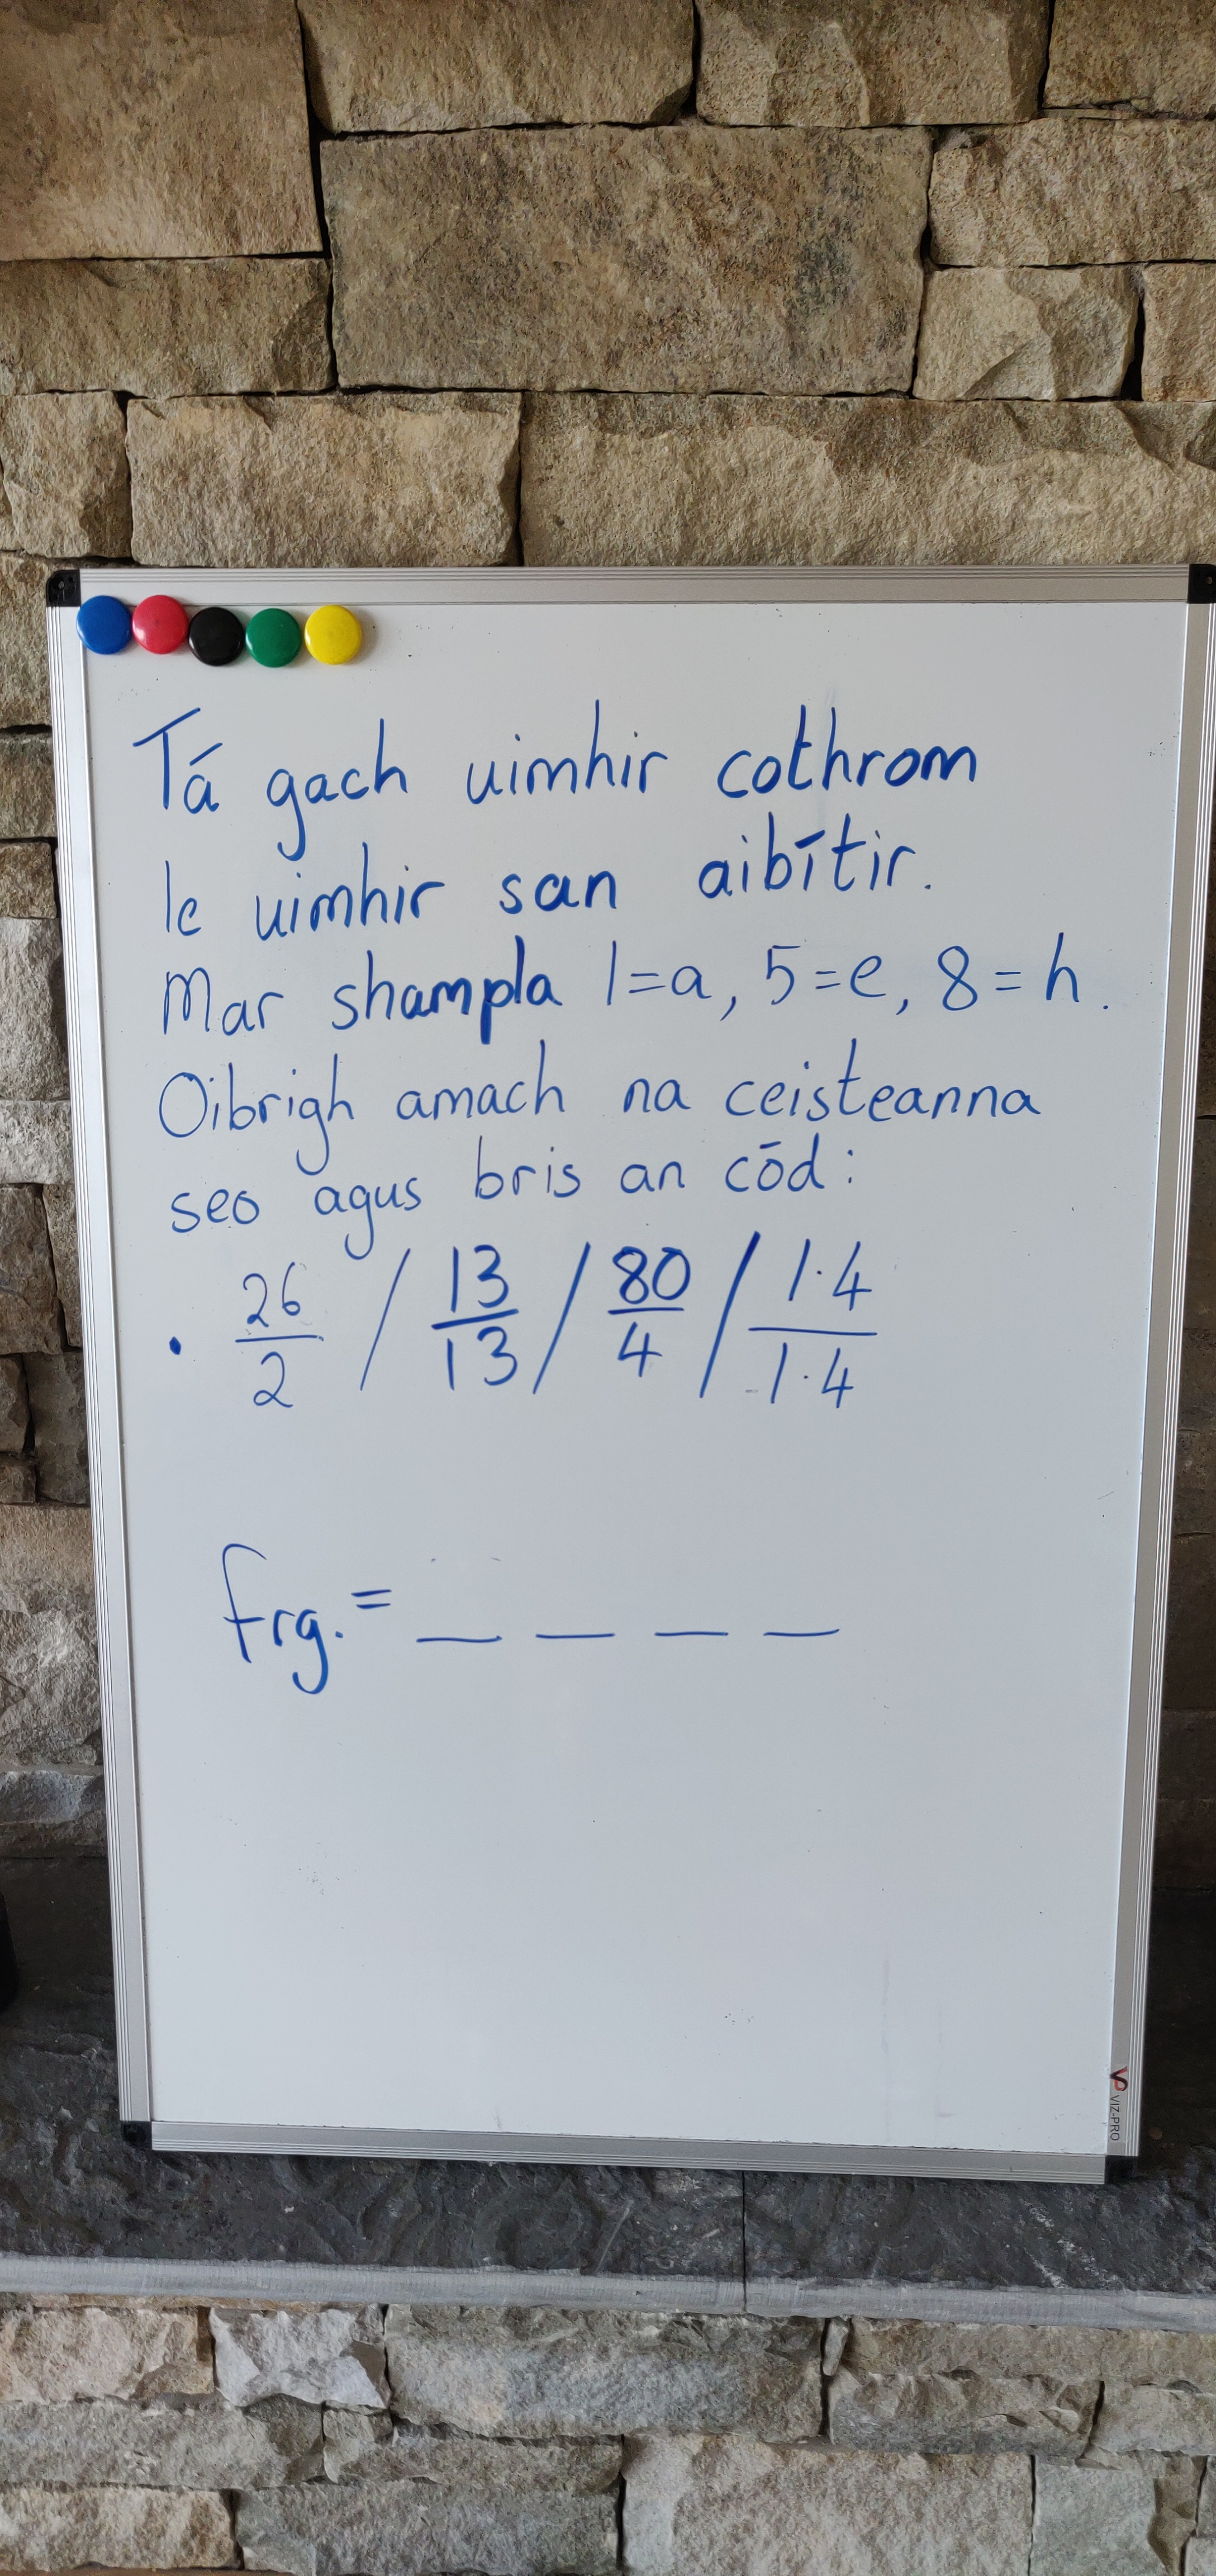 Tá gach uimhir cothrom
le uimhir san aibítir.
Mar shampla 1=a, 5=e, 8=h.
Oibrigh amach na ceisteanna
seo agus bris an cód:
• 26/2 / 13/13 / 80/4 / 1.4/1.4
frg. = _ _ _ _
VP VIZ-PRO